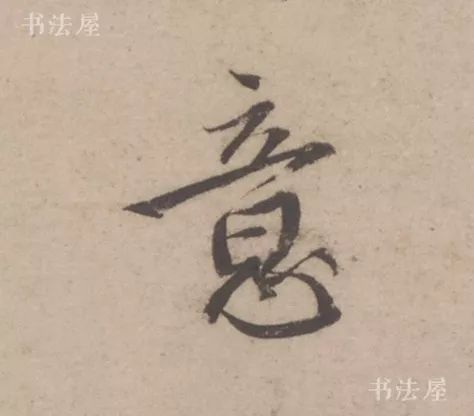 书法屋
意
书法屋